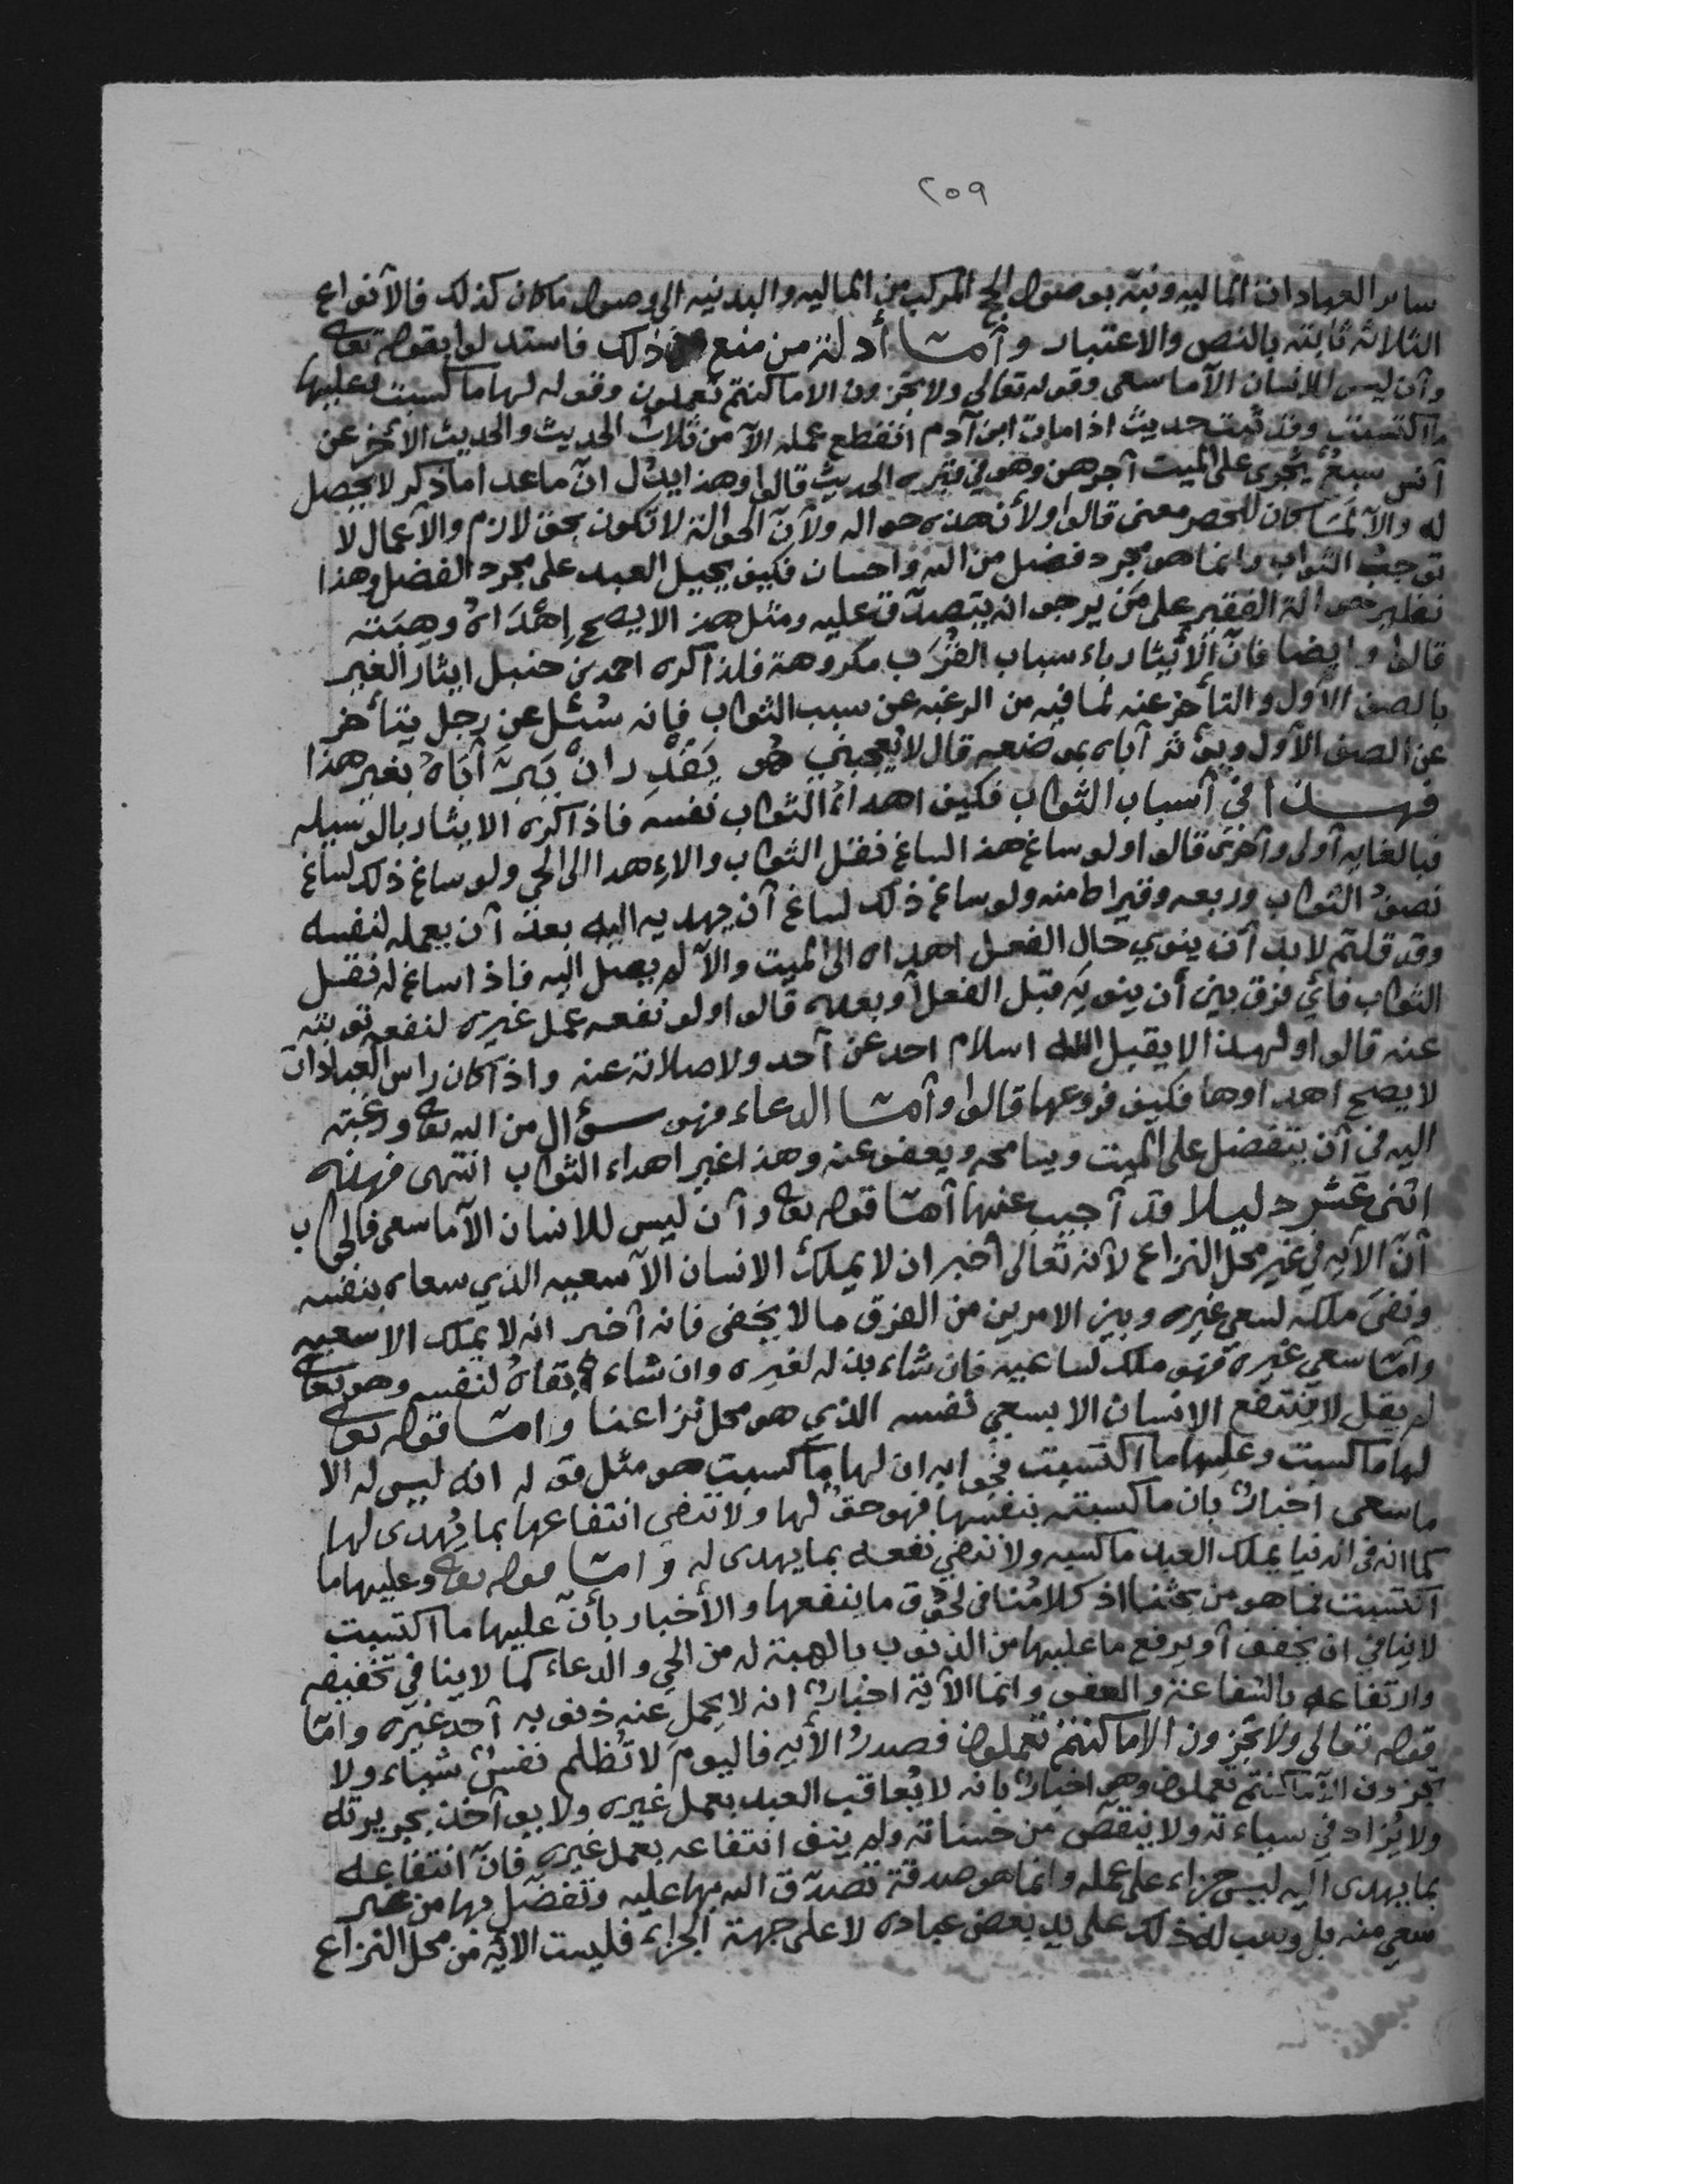 ٢٥٩
ساير العبادات الماليه ونبّه بوصول الحج المركب من الماليه والبدنيه الى وصول ماكان كذلك فالأنواع
الثلاثه ثابته بالنص والاعتبار وأما أدلة من منع ذلك فاستدلوا بقوله تعالى
وأن ليس للانسان الآ ما سعى وقوله تعالى ولا تجزون الا ما كنتم تعملون وقوله لها ما كسبت وعليها
ما اكتسبت وقد ثبت حديث اذا مات ابن آدم انقطع عمله الآ من ثلاث الحديث والحديث الأخر عن
آنس سبعٌ يجرى على الميت آجرهن وهو في قبره الحديث قالوا وهذا يدل انّ ما عدا ما ذكر لا يحصل
له والآ لمَا كان للحصر معنى قالوا ولأن هذه حواله ولآنّ الحوالة لا تكون بحق لازم والآعمال لا
توجبُ الثواب وانما هو مجرد فضل من الله واحسان فكيف يحيل العبد على مجرد الفضل وهذا
نظير حوالة الفقير على مَن يرجو ان يتصدّق عليه ومثل هذا لا يصح إهْدَاهُ وهِبَته
قالوا وايضا فانّ الأيثار باءسباب القُرَب مكروهة فلذا كره احمد بن حنبل ايثار الغير
بالصف الأول والتأخر عنه لما فيه من الرغبه عن سبب الثواب فانه سُئل عن رجل يتأخر
عن الصف الآول ويؤثر آباه بموضعه قال لا يُعجبني هُو يَقْدِر انْ يَبرّ آبَاهُ بغير هذا
فهذا في آسباب الثواب فكيف اهداء الثواب نفسه فاذا كره الايثار بالوسيله
فبالغايه آولى وآحرى قالوا ولو ساغ هذا لساغ نقل الثواب والاءهدا الى الحي ولو ساغ ذلك لساغ
نصفُ الثواب وربعه وقيراط منه ولو ساغ ذلك لساغ آن يهديه اليه بعد آن يعمله لنفسه
وقد قلتم لابد آن ينوي حال الفعل اهداه الى الميت والآ لم يصل اليه فاذا ساغ له نقل
الثواب فأي فرق بين أن ينويَه قبل الفعل آو بعده قالوا ولو نفعه عمل غيره لنفعه توبته
عنه قالوا ولهذا لا يقبل الله اسلام احد عن آحد ولا صلاته عنه واذا كان راس العبادات
لا يصح اهداوها فكيف فروعها قالوا وآما الدعاء فهو سؤال من الله تعالى ورغبته
اليه في آن يتفضل على الميت ويسامحه ويعفو عنه وهذا غير اهداء الثواب انتهى فهذه
اثنى عشر دليلا قد آجيب عنها آما قوله تعالى وآن ليس للانسان الآ ما سعى فالجواب
آنّ الآيه في غير محل النزاع لآنه تعالى أخبر ان لا يملكُ الانسان الآ سعيه الذي سعاه بنفسه
ونفىَ ملكه لسعي غيره وبين الامرين من الفرق ما لا يخفى فانه آخبر انه لا يملك الا سعيه
وآما سعي غيره فهو ملك لساعيه فان شاء بذله لغيره وان شاء ابقاهُ لنفسه وهو تعالى
لم يقل لا ينتفع الانسان الا بسعي نفسه الذي هو محل نزاعنا واما قوله تعالى
لها ما كسبت وعليها ما اكتسبت فجوابه ان لها ما كسبت هو مثل قوله انه ليس له الا
ما سعى اخبارٌ بان ما كسبته بنفسها فهو حقٌ لها ولا تنفي انتفاعها بما يُهدى لها
كما انه في الدنيا يملك العبد ما كسبه ولا تنفي نفعه بما يهدى له واما قوله تعالى وعليها ما
اكتسبت فما هو من بحثنا اذ كلامُنا في لحوق ما ينفعها والأخبار بأنّ عليها ما اكتسبت
لا ينافي ان يخفف آو يرفع ما عليها من الذنوب بالهبة له من الحي والدعاء كما لا ينافي تخفيفه
وارتفاعه بالشفاعة والعفو وانما الآية اخبارٌ انه لا يحمل عنه ذنوبه آحد غيره واما
قوله تعالى ولا تجزون الا ما كنتم تعملون فصدرُ الأيه فاليومَ لا تُظلم نفسٌ شيئاء ولا
تجزون الآ ما كنتم تعملون وهي اخبارٌ بانه لا يُعاقب العبد بعمل غيره ولا يوآخذ بجريرته
ولا يُزاد في سياءته ولا ينقص من حسناته ولم ينف انتفاعه بعمل غيره فانّ انتفاعه
بما يهدى اليه ليس جزاء على عمله وانما هو صدقة تصدّق الله بها عليه وتفضل بها من غير
سعي منه بل وهب له ذلك على يد بعض عباده لا على جهة الجزاء فليست الايه من محل النزاع